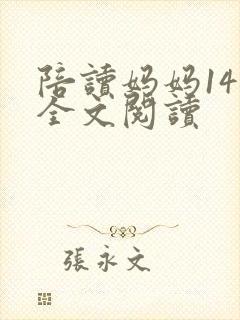 陪讀妈妈14
全文閱讀
張永文